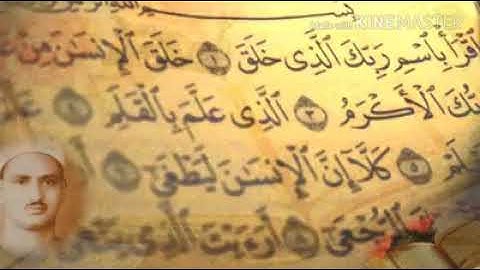 Made with KINEMASTER
بِسْمِ
اقْرَأْ بِاسْمِ رَبِّكَ الَّذِي خَلَقَ ١ خَلَقَ الْإِنسَانَ مِنْ
الْأَكْرَمُ ٣ الَّذِي عَلَّمَ بِالْقَلَمِ ٤
٥ كَلَّا إِنَّ الْإِنسَانَ لَيَطْغَى ٦
الرُّجْعَى ٨ أَرَأَيْتَ الَّذِي يَنْهَى